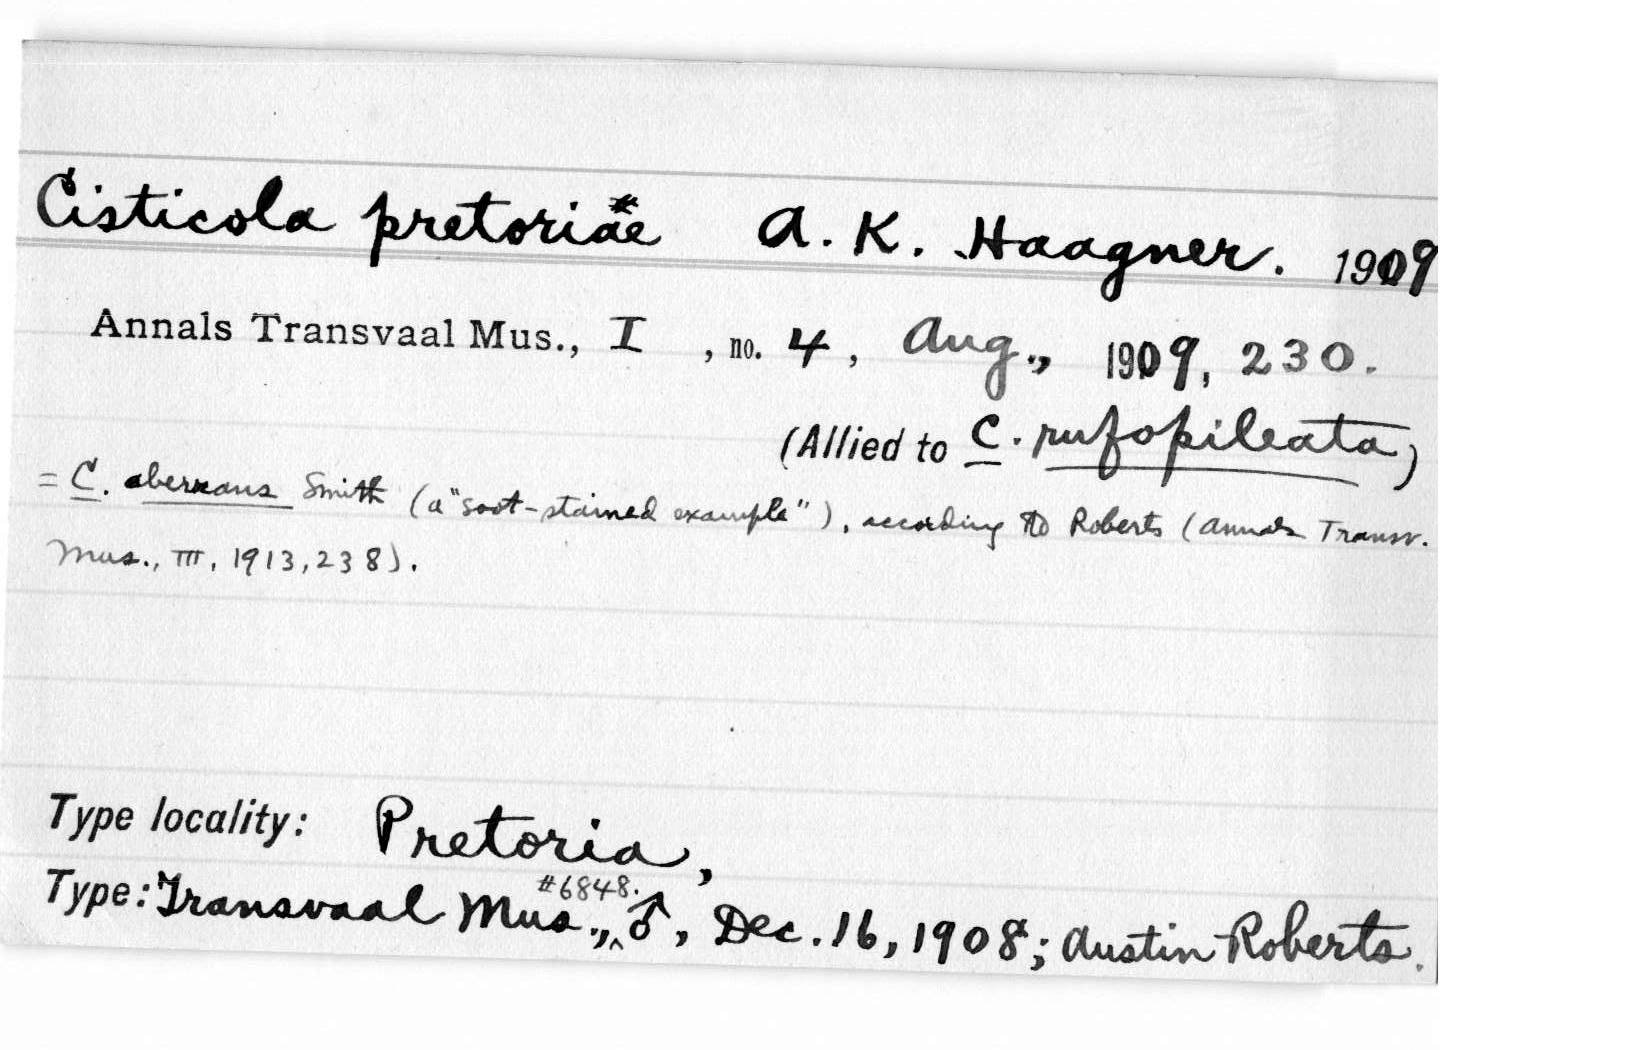 Cisticola pretoriae A. K. Haagner. 1909
Annals Transvaal Mus., I, no. 4, Aug., 1909, 230.
(Allied to C. rufopileata)
= C. aberrans Smith (a "soot-stained example"), according to Roberts (Annals Transv.
Mus., III, 1913, 238).
Type locality: Pretoria,
#6848.
Type: Transvaal Mus., ^ ♂, Dec. 16, 1908; Austin Roberts.